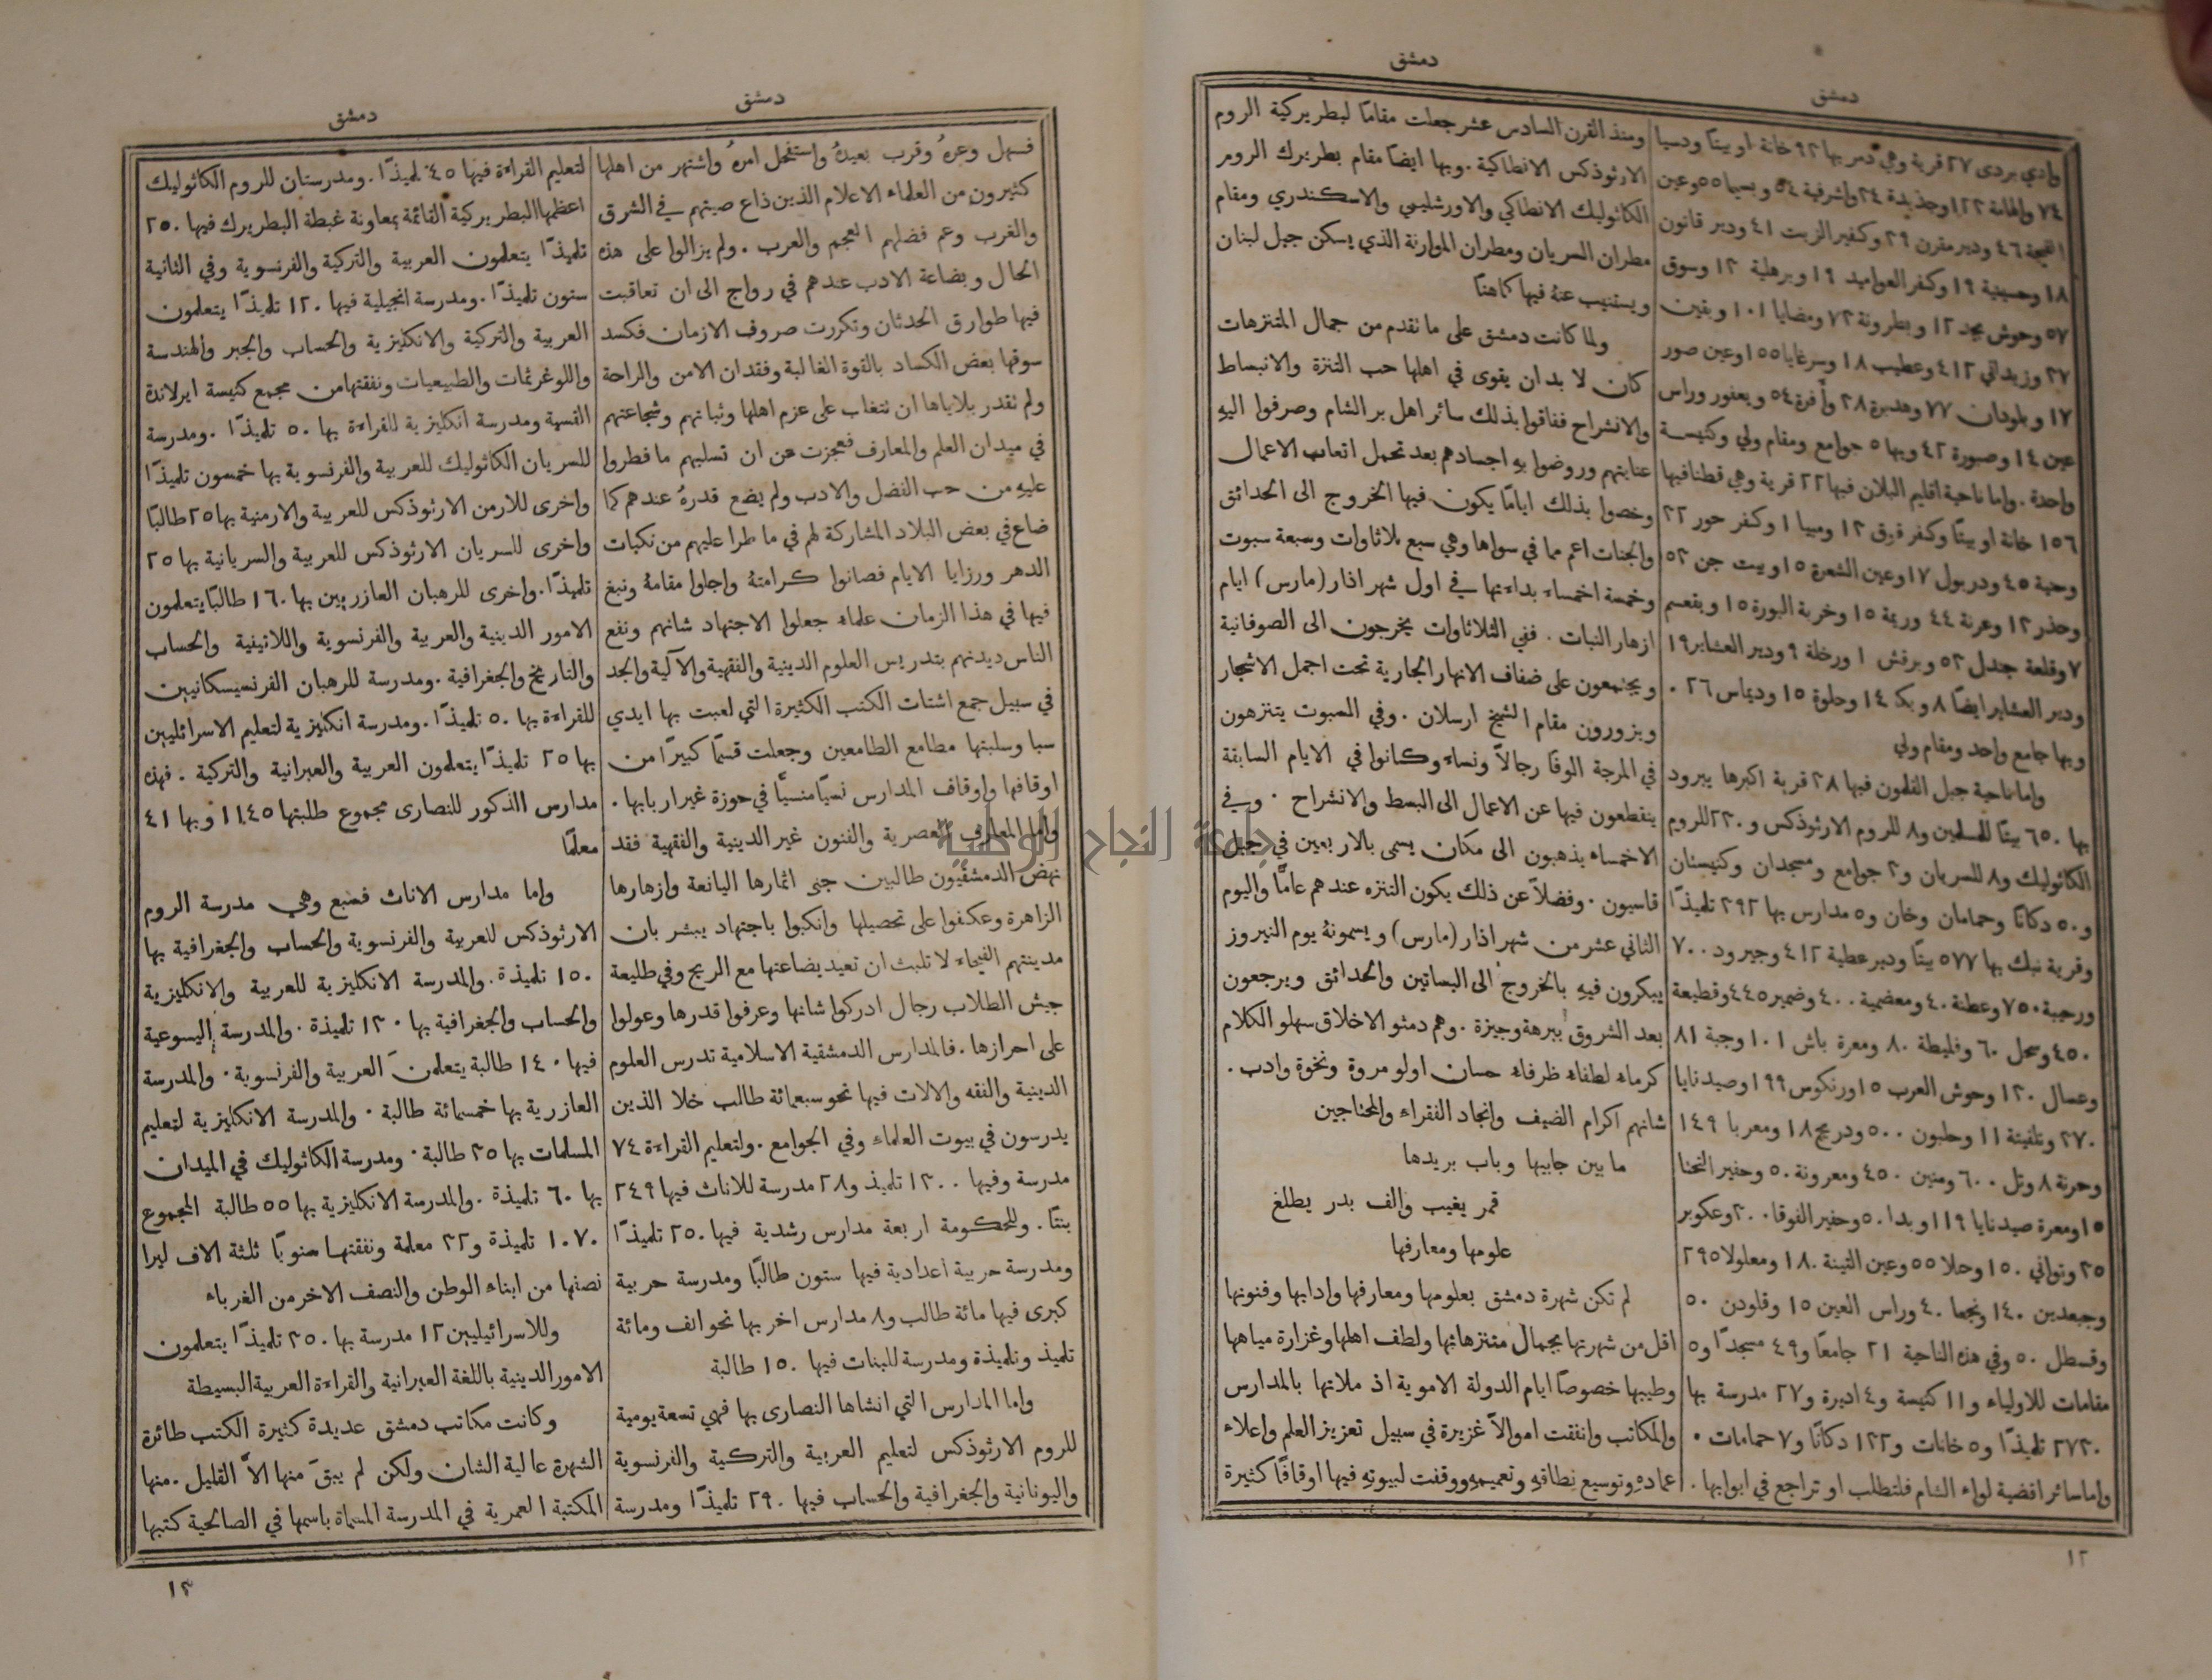 دمشق
دمشق
وادي بردى ٢٧ قرية وهي دمر بها ٩٢ خانة او بيتًا ودسيا
٧٤ والهامة ١٢٢ وجديدة ٢٤ واشرفية ٥٤ وبسيما ٥٥ وعين
الفيجة ٤٦ ودير مقرن ٢٩ وكفير الزيت ٤١ ودير قانون
١٨ وحسينية ١٩ وكفر العواميد ١٩ وبرهلية ١٢ وسوق
٥٧ وحوش بجد ١٢ وبطرونة ٧٢ ومضايا ١٠١ وبقين
٢٧ وزبداني ٤١٢ وعطيب ١٨ وسرغايا ١٥٥ وعين صور
١٧ وبلودان ٧٧ وهدبرة ٢٨ وأفرة ٥٤ ويعفور وراس
عين ١٤ وصبورة ٤٢ وبها ٥ جوامع ومقام ولي وكنيسة
واحدة . واما ناحية اقليم البلان فيها ٢٢ قرية وهي قطنا فيها
١٥٦ خانة او بيتًا وكفر قوق ١٢ ومبيا ١ وكفر حور ٢٢
وحينة ٤٥ ودربول ١٧ وعين الشعرة ١٥ وبيت جن ٥٢
وحذر ١٢ وعرنة ٤٤ وريمة ١٥ وخربة البورة ١٥ وبقعسم
٧ وقلعة جندل ٥٢ وبرقش ١ ورخلة ٩ ودير العشاير ١٩
ودير العشاير ايضًا ٨ وبكا ١٤ وحلوة ١٥ وديماس ٢٦ .
وبها جامع واحد ومقام ولي
واما ناحية جبل القلمون فيها ٢٨ قرية اكبرها يبرود
بها ٦٥٠ بيتًا للمسلمين و٨ للروم الارثوذكس و٢٢٠ للروم
الكاثوليك و٨ للسريان و٢ جوامع ومسجدان وكنيستان
و٥٠ دكانًا وحمامان وخان و٥ مدارس بها ٢٩٢ تلميذًا
وقرية نبك بها ٥٧٧ بيتًا ودير عطية ٤١٢ وجيرود ٧٠٠
ورحيبة ٧٥٠ وعطنة ٤٠ ومعضمية ٤٠٠ وضمير ٤٤٥ وقطيعة
٤٥٠ وسحل ٦٠ وفليطة ٨٠ ومعرة باش ١٠١ وجبة ٨١
وعسال ١٢٠ وحوش العرب ١٥ ورنكوس ١٩٩ وصيدنايا
٢٧٠ وتلفيتة ١١ وحلبون ٥٠٠ ودريج ١٨ ومعربا ١٤٩
وحرنة ٨ وتل ٦٠٠ ومنين ٤٥٠ ومعرونة ٥٠ وحفير التحتا
١٥ ومعرة صيدنايا ١١٩ وبدا ٥٠ وحفير الفوقا ٢٠٠ وعكوبر
٢٥ وتواني ١٥٠ وحلا ٥٥ وعين التينة ١٨٠ ومعلولا ٢٩٥
وجبعدين ١٤٠ ونجعا ٤٠ وراس العين ١٥ وقلودن ٥٠
وقسطل ٥٠ وفي هذه الناحية ٢١ جامعًا و٤٩ مسجدًا و٥
مقامات للاولياء و١١ كنيسة و٤ اديرة و٢٧ مدرسة بها
٢٧٢٠ تلميذًا و٥ خانات و١٢٢ دكانًا و٧ حمامات .
واما سائر اقضية لواء الشام فلتطلب او تراجع في ابوابها .
ومنذ القرن السادس عشر جعلت مقامًا لبطريركية الروم
الارثوذكس الانطاكية . وبها ايضًا مقام بطريرك الروم
الكاثوليك الانطاكي والاورشليمي والاسكندري ومقام
مطران السريان ومطران الموارنة الذي يسكن جبل لبنان
ويستنيب عنهُ فيها كاهنًا
ولما كانت دمشق على ما تقدم من جمال المتنزهات
كان لا بد ان يقوى في اهلها حب التنزه والانبساط
والانشراح ففاقوا بذلك سائر اهل بر الشام وصرفوا اليهِ
عنايتهم وروضوا بهِ اجسادهم بعد تحمل اتعاب الاعمال
وخصوا بذلك ايامًا يكون فيها الخروج الى الحدائق
والجنات اعم مما في سواها وهي سبع ثلاثاوات وسبعة سبوت
وخمسة اخمساء بداءتها في اول شهر اذار (مارس) ايام
ازهار النبات . ففي الثلاثاوات يخرجون الى الصوفانية
ويجتمعون على ضفاف الانهار الجارية تحت اجمل الاشجار
ويزورون مقام الشيخ ارسلان . وفي السبوت يتنزهون
في المرجة الوفًا رجالًا ونساء وكانوا في الايام السابقة
ينقطعون فيها عن الاعمال الى البسط والانشراح . وفي
الاخمساء يذهبون الى مكان يسمى بالاربعين في جبل
قاسيون . وفضلًا عن ذلك يكون التنزه عندهم عامًّا واليوم
الثاني عشر من شهر اذار (مارس) ويسمونهُ يوم النيروز
يبكرون فيهِ بالخروج الى البساتين والحدائق ويرجعون
بعد الشروق ببرهة وجيزة . وهم دمثو الاخلاق سهلو الكلام
كرماء لطفاء ظرفاء حسان اولو مروة ونخوة وادب .
شانهم اكرام الضيف وانجاد الفقراء والمحتاجين
ما بين جابيها وباب بريدها
قمر يغيب والف بدر يطلع
علومها ومعارفها
لم تكن شهرة دمشق بعلومها ومعارفها وادابها وفنونها
اقل من شهرتها بجمال متنزهاتها ولطف اهلها وغزارة مياهها
وطيبها خصوصًا ايام الدولة الاموية اذ ملاتها بالمدارس
والمكاتب وانفقت اموالًا غزيرة في سبيل تعزيز العلم واعلاء
عمادهِ وتوسيع نطاقهِ وتعميمهِ ووقفت لبيوتهِ فيها اوقافًا كثيرة
١٢
دمشق
دمشق
فسهل وعرهُ وقرب بعيدهُ واستفحل امرهُ واشتهر من اهلها
كثيرون من العلماء الاعلام الذين ذاع صيتهم في الشرق
والغرب وعم فضلهم العجم والعرب . ولم يزالوا على هذه
الحال وبضاعة الادب عندهم في رواج الى ان تعاقبت
فيها طوارق الحدثان وتكررت صروف الازمان فكسد
سوقها بعض الكساد بالقوة الغالبة وفقدان الامن والراحة
ولم تقدر بلاياها ان تتغلب على عزم اهلها وثباتهم وشجاعتهم
في ميدان العلم والمعارف فعجزت عن ان تسليهم ما فطروا
عليهِ من حب الفضل والادب ولم يضع قدرهُ عندهم كما
ضاع في بعض البلاد المشاركة لهم في ما طرا عليهم من نكبات
الدهر ورزايا الايام فصانوا كرامتهُ واجلوا مقامهُ ونبغ
فيها في هذا الزمان علماء جعلوا الاجتهاد شانهم ونفع
الناس ديدنهم بتدريس العلوم الدينية والفقهية والآلية والجد
في سبيل جمع اشتات الكتب الكثيرة التي لعبت بها ايدي
سبا وسلبتها مطامع الطامعين وجعلت قسمًا كبيرًا من
اوقافها واوقاف المدارس نسيًا منسيًّا في حوزة غير اربابها .
واما المعارف العصرية والفنون غير الدينية والفقهية فقد
نهض الدمشقيون طالبين جنى اثمارها اليانعة وازهارها
الزاهرة وعكفوا على تحصيلها وانكبوا باجتهاد يبشر بان
مدينتهم الفيحاء لا تلبث ان تعيد بضاعتها مع الربح وفي طليعة
جيش الطلاب رجال ادركوا شانها وعرفوا قدرها وعولوا
على احرازها . فالمدارس الدمشقية الاسلامية تدرس العلوم
الدينية والفقه والالات فيها نحو سبعمائة طالب خلا الذين
يدرسون في بيوت العلماء وفي الجوامع . ولتعليم القراءة ٧٤
مدرسة وفيها ١٢٠٠ تلميذ و٢٨ مدرسة للاناث فيها ٢٤٩
بنتًا . وللحكومة اربعة مدارس رشدية فيها ٢٥٠ تلميذًا
ومدرسة حربية اعدادية فيها ستون طالبًا ومدرسة حربية
كبرى فيها مائة طالب و٨ مدارس اخر بها نحو الف ومائة
تلميذ وتلميذة ومدرسة للبنات فيها ١٥٠ طالبة
واما المدارس التي انشاها النصارى بها فهي تسعة يومية
للروم الارثوذكس لتعليم العربية والتركية والفرنسوية
واليونانية والجغرافية والحساب فيها ٢٩٠ تلميذًا ومدرسة
لتعليم القراءة فيها ٤٥ تلميذًا . ومدرستان للروم الكاثوليك
اعظمها البطريركية القائمة بمعاونة غبطة البطريرك فيها ٢٥٠
تلميذًا يتعلمون العربية والتركية والفرنسوية وفي الثانية
ستون تلميذًا . ومدرسة انجيلية فيها ١٢٠ تلميذًا يتعلمون
العربية والتركية والانكليزية والحساب والجبر والهندسة
واللوغرثمات والطبيعيات ونفقتها من مجمع كنيسة ايرلاندة
القسية ومدرسة انكليزية للقراءة بها ٥٠ تلميذًا . ومدرسة
للسريان الكاثوليك للعربية والفرنسوية بها خمسون تلميذًا
واخرى للارمن الارثوذكس للعربية والارمنية بها ٢٥ طالبًا
واخرى للسريان الارثوذكس للعربية والسريانية بها ٢٥
تلميذًا . واخرى للرهبان العازريين بها ١٦٠ طالبًا يتعلمون
الامور الدينية والعربية والفرنسوية واللاتينية والحساب
والتاريخ والجغرافية . ومدرسة للرهبان الفرنسيسكانيين
للقراءة بها ٥٠ تلميذًا . ومدرسة انكليزية لتعليم الاسرائليين
بها ٢٥ تلميذًا يتعلمون العربية والعبرانية والتركية . فهذه
مدارس الذكور للنصارى مجموع طلبتها ١١٤٥ وبها ٤١
معلمًا
واما مدارس الاناث فسبع وهي مدرسة الروم
الارثوذكس للعربية والفرنسوية والحساب والجغرافية بها
١٥٠ تلميذة . والمدرسة الانكليزية للعربية والانكليزية
والحساب والجغرافية بها ١٢٠ تلميذة . والمدرسة اليسوعية
فيها ١٤٠ طالبة يتعلمنَ العربية والفرنسوية . والمدرسة
العازرية بها خمسمائة طالبة . والمدرسة الانكليزية لتعليم
المسلمات بها ٢٥ طالبة . ومدرسة الكاثوليك في الميدان
بها ٦٠ تلميذة . والمدرسة الانكليزية بها ٥٥ طالبة المجموع
١٠٧٠ تلميذة و٢٢ معلمة ونفقتها سنويًا ثلثة الاف ليرا
نصفها من ابناء الوطن والنصف الاخر من الغرباء
وللاسرائيليين ١٢ مدرسة بها ٢٥٠ تلميذًا يتعلمون
الامور الدينية باللغة العبرانية والقراءة العربية البسيطة
وكانت مكاتب دمشق عديدة كثيرة الكتب طائرة
الشهرة عالية الشان ولكن لم يبقَ منها الاَّ القليل . منها
المكتبة العمرية في المدرسة المسماة باسمها في الصالحية كتبها
١٣
جامعة النجاح الوطنية